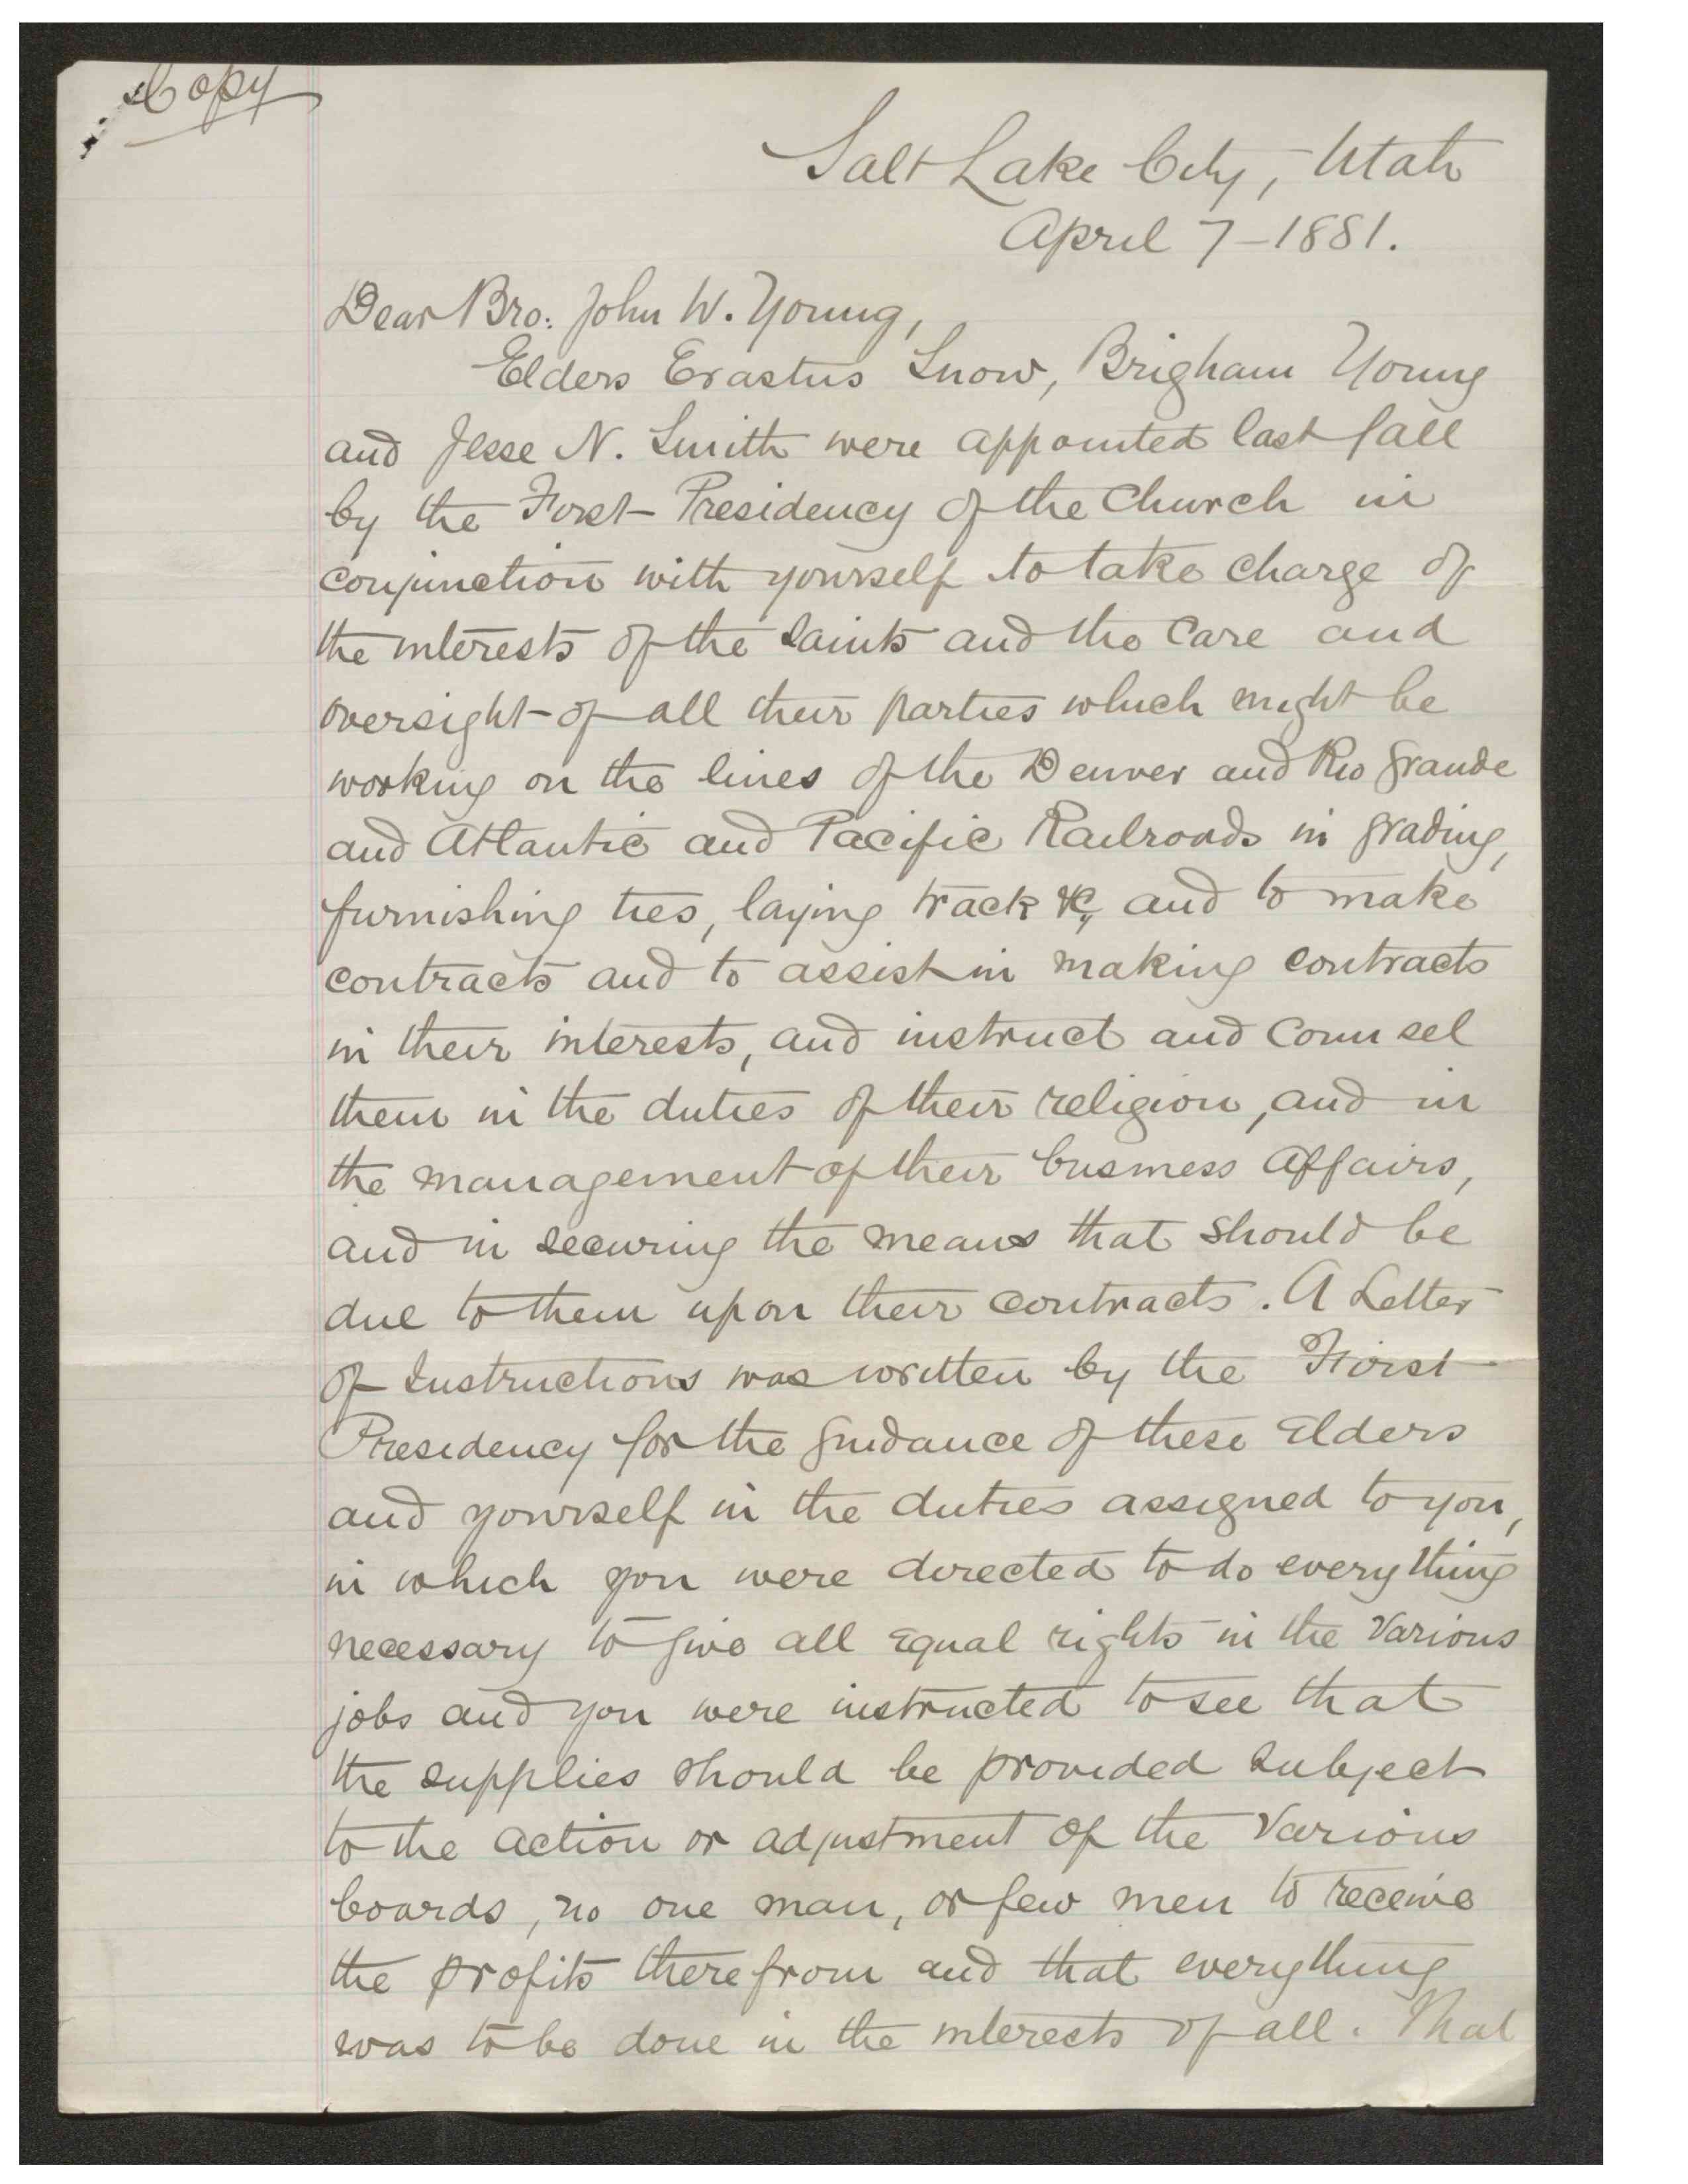 Copy
Salt Lake City, Utah
April 7-1881.
Dear Bro: John W. Young,
Elders Erastus Snow, Brigham Young
and Jesse N. Smith were appointed last fall
by the First Presidency of the Church in
conjunction with yourself to take charge of
the interests of the Saints and the care and
oversight of all their parties which might be
working on the lines of the Denver and Rio Grande
and Atlantic and Pacific Railroads in grading,
furnishing ties, laying track &c, and to make
contracts and to assist in making contracts
in their interests, and instruct and Counsel
them in the duties of their religion, and in
the management of their business affairs,
and in securing the means that should be
due to them upon their contracts. A Letter
of Instructions was written by the First
Presidency for the guidance of these Elders
and yourself in the duties assigned to you,
in which you were directed to do everything
necessary to give all equal rights in the various
jobs and you were instructed to see that
the supplies should be provided subject
to the action or adjustment of the various
boards, no one man, or few men to receive
the profits therefrom and that everything
was to be done in the interests of all. That